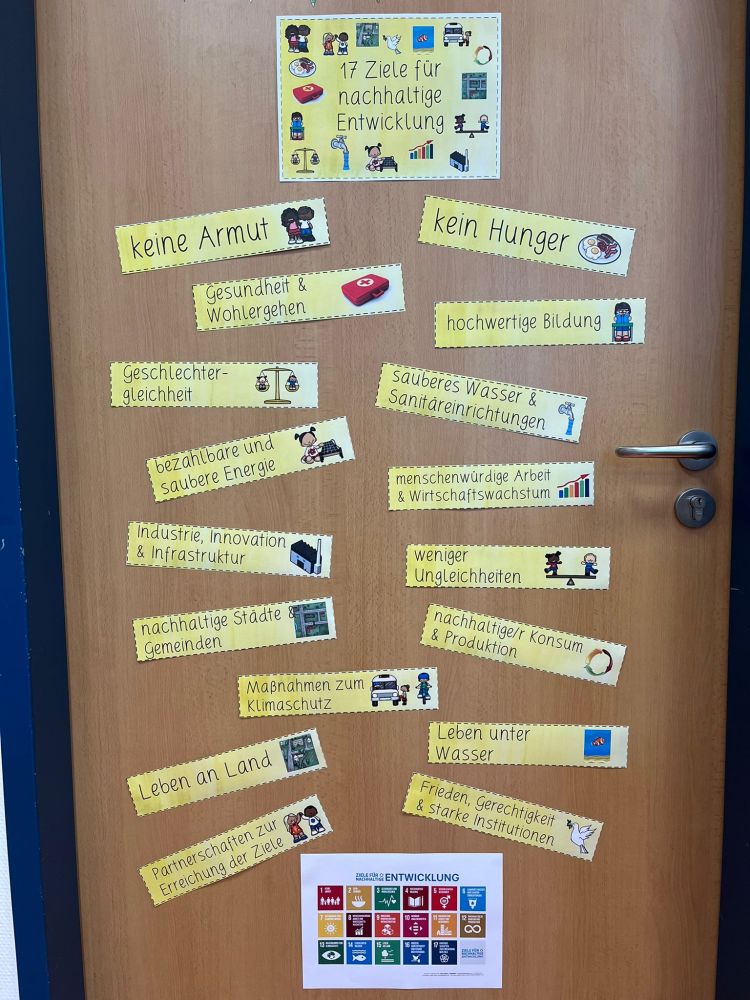 17 Ziele für
nachhaltige
Entwicklung
keine Armut
kein Hunger
Gesundheit &
Wohlergehen
hochwertige Bildung
Geschlechter-
gleichheit
sauberes Wasser &
Sanitäreinrichtungen
bezahlbare und
saubere Energie
menschenwürdige Arbeit
& Wirtschaftswachstum
Industrie, Innovation
& Infrastruktur
weniger
Ungleichheiten
nachhaltige Städte &
Gemeinden
nachhaltige/r Konsum
& Produktion
Maßnahmen zum
Klimaschutz
Leben unter
Wasser
Leben an Land
Frieden, Gerechtigkeit
& starke Institutionen
Partnerschaften zur
Erreichung der Ziele
ZIELE FÜR
NACHHALTIGE ENTWICKLUNG
1 2 3 4 5 6
7 8 9 10 11 12
13 14 15 16 17